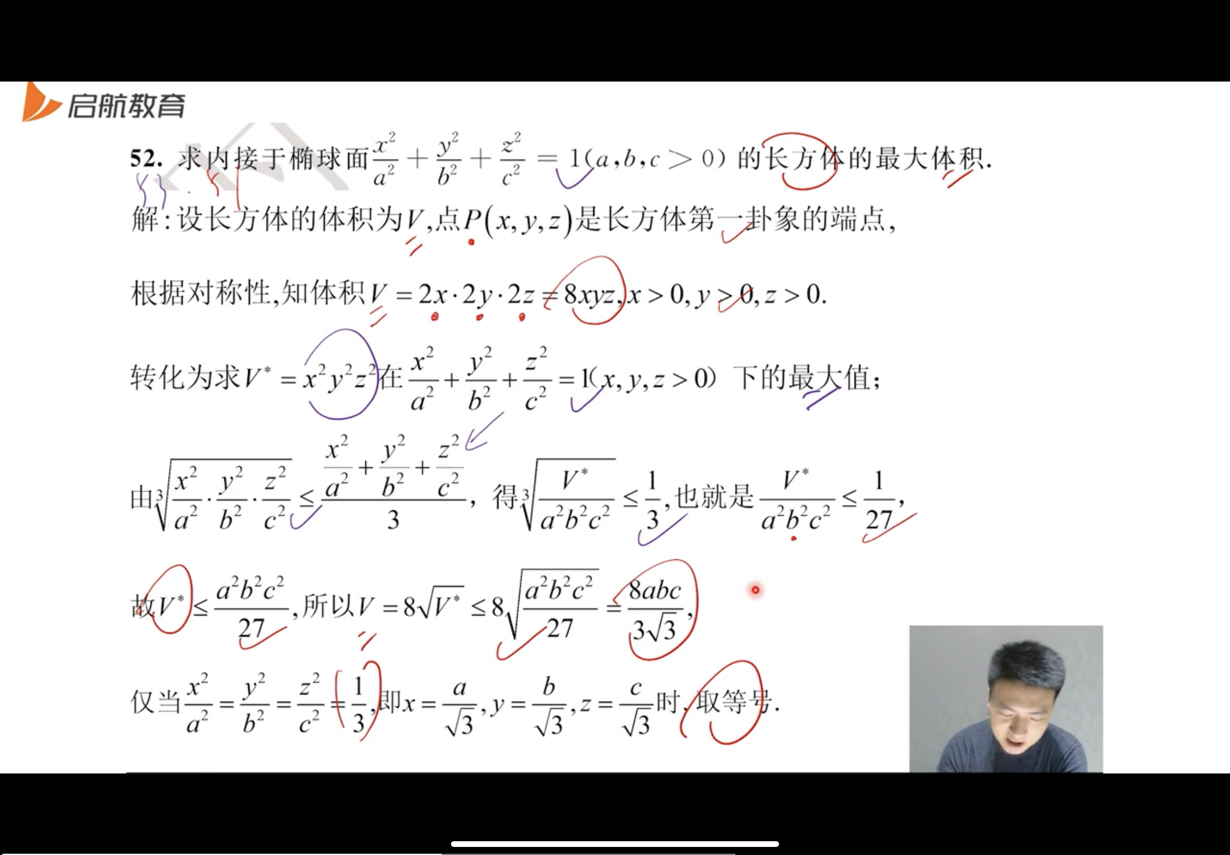 启航教育
52. 求内接于椭球面 x²/a² + y²/b² + z²/c² = 1(a,b,c > 0) 的长方体的最大体积.
解:设长方体的体积为V,点P(x, y, z)是长方体第一卦象的端点,
根据对称性,知体积V = 2x·2y·2z = 8xyz, x > 0, y > 0, z > 0.
转化为求V* = x²y²z²在 x²/a² + y²/b² + z²/c² = 1(x, y, z > 0) 下的最大值;
由∛(x²/a² · y²/b² · z²/c²) ≤ (x²/a² + y²/b² + z²/c²)/3, 得∛(V*/(a²b²c²)) ≤ 1/3,也就是 V*/(a²b²c²) ≤ 1/27,
故V* ≤ a²b²c²/27,所以V = 8√V* ≤ 8√(a²b²c²/27) = 8abc/(3√3),
仅当 x²/a² = y²/b² = z²/c² = 1/3,即x = a/√3, y = b/√3, z = c/√3 时,取等号.